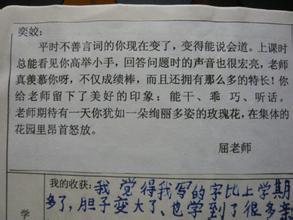 奕姣：
平时不善言词的你现在变了，变得能说会道。上课时
总能看见你高举小手，回答问题时的声音也很宏亮，老师
真羡慕你呀，不仅成绩棒，而且还拥有那么多的特长！你
给老师留下了美好的印象：能干、乖巧、听话。
老师期待有一天你犹如一朵绚丽多姿的玫瑰花，在集体的
花园里昂首怒放。
屈老师
我的收获：我觉得我写的字比上学期
多了，胆子变大了、也学到了很多
学